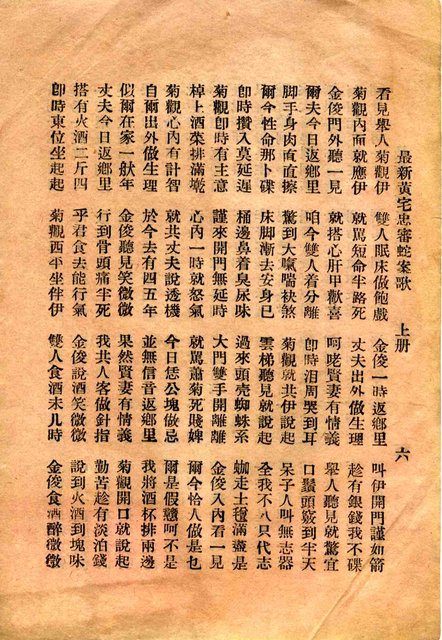 最新黃宅忠審蛇案歌 上册 六
看見舉人菊觀伊 雙人眠床做飽戲 金俊一時返鄉里 叫伊開門謹如箭
菊觀內面就應伊 就罵短命半路死 丈夫出外做生理 趁有銀錢我不碟
金俊門外聽一見 就搭心肝甲歡喜 呵咾賢妻有情義 舉人聽見就驚宜
爾夫今日返鄉里 咱今雙人着分離 卽時泪周哭到耳 口鬚頭到半天
脚手身肉直直擦 驚到大氣喘袂煞 菊觀就共伊說起 呆子人叫無志器
爾今性命那卜碟 床脚漸去安身巳 雲梯聽見就說起 全我不八只代志
卽時攢入莫延遲 桶邊鼻着臭尿味 過來頭壳蜘蛛系 走土滿盡是
菊觀卽時有主意 謹來開門無延時 大門雙手開離離 金俊入內看一見
棹上酒菜排滿墘 心內一時就怒氣 就罵蕭菊死賤婢 爾今恰人做是乜
菊觀心內有計智 就共丈夫說透機 今日恁公塊做忌 爾是假戇呵不是
自爾出外做生理 於今去有四五年 並無信音返鄉里 我將酒杯排兩邊
似爾在家一般年 金俊聽見笑微微 果然賢妻有情義 菊觀開口就說起
丈夫今日返鄉里 行到骨頭痛半死 我共人客做針指 勤苦趁有淡泊錢
搭有火酒二斤四 乎君食去能行氣 金俊說酒笑微微 說到火酒到塊味
卽時東位坐起起 菊觀西平坐伴伊 雙人食酒未几時 金俊食酒醉微微